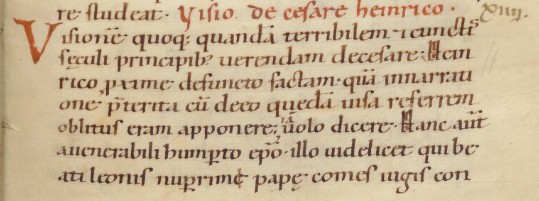 re studeat. Visio de cesare heinrico. XIIII.
Visionē quoq; quandā terribilem. & cunctis
sęculi principib; verendam de cesare hein
rico proxime defuncto factam. quā in narrati
one p̄terita cū de eo quędā visa referrem
oblitus eram apponere; volo dicere. Hanc aūt
a venerabili humperto ep̄o. illo videlicet qui be
ati leonis nuperrimę papę. comes iugis con